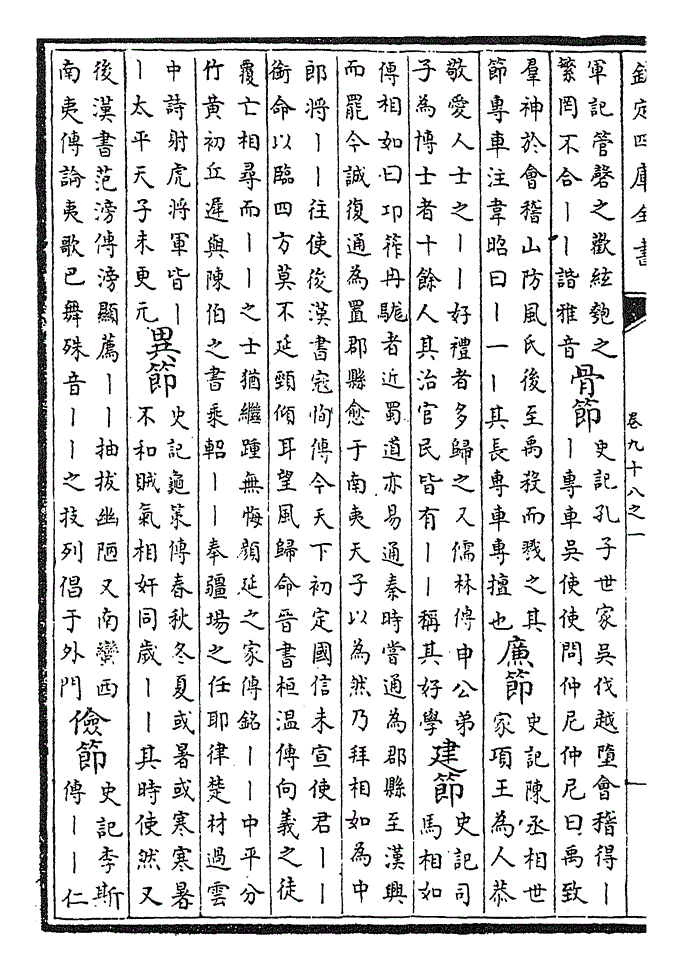 欽定四庫全書　卷九十八之一
軍記管磬之歡絃匏之
繁罔不合丨丨諧雅音
骨節
史記孔子世家吳伐越墮會稽得丨
丨專車吳使使問仲尼仲尼曰禹致
羣神於會稽山防風氏後至禹殺而戮之其
節專車注韋昭曰丨一丨其長專車專擅也
廉節
史記陳丞相世
家項王為人恭
敬愛人士之丨丨好禮者多歸之又儒林傳申公弟
子為博士者十餘人其治官民皆有丨丨稱其好學
建節
史記司
馬相如
傳相如曰邛筰冉駹者近蜀道亦易通秦時嘗通為郡縣至漢興
而罷今誠復通為置郡縣愈于南夷天子以為然乃拜相如為中
郎將丨丨往使後漢書寇恂傳今天下初定國信未宣使君丨丨
銜命以臨四方莫不延頸傾耳望風歸命晉書桓温傳向義之徒
覆亡相尋而丨丨之士猶繼踵無悔顔延之家傳銘丨丨中平分
竹黃初丘遲與陳伯之書乘軺丨丨奉疆場之任耶律楚材過雲
中詩射虎將軍皆丨
丨太平天子未更元
異節
史記龜策傳春秋冬夏或暑或寒寒暑
不和賊氣相奸同歲丨丨其時使然又
後漢書范滂傳滂顯薦丨丨抽拔幽陋又南蠻西
南夷傳論夷歌巴舞殊音丨丨之技列倡于外門
儉節
史記李斯
傳丨丨仁